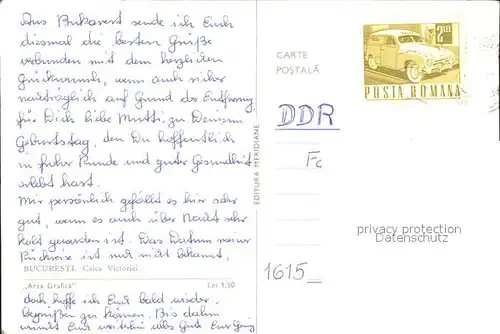 Aus Bukarest sende ich Euch
diesmal die besten Grüße
verbunden mit dem herzlichen
Glückwunsch, wenn auch sicher
nachträglich auf Grund der Entfernung
für Dich liebe Mutti zu Deinem
Geburtstag, den Du hoffentlich
in froher Runde und guter Gesundheit
erlebt hast.
Mir persönlich gefällt es hier sehr
gut, wenn es auch über Nacht sehr
kalt geworden ist. Das Datum meiner
Rückreise ist noch nicht bekannt,
BUCUREȘTI. Calea Victoriei
„Arta Grafică” Lei 1,50
doch hoffe ich Euch bald wieder
begrüßen zu können. Bis dahin
alles Gute Euer
EDITURA MERIDIANE
CARTE
POȘTALĂ
2 LEI
POSTA ROMANA
DDR
1615
privacy protection
Datenschutz